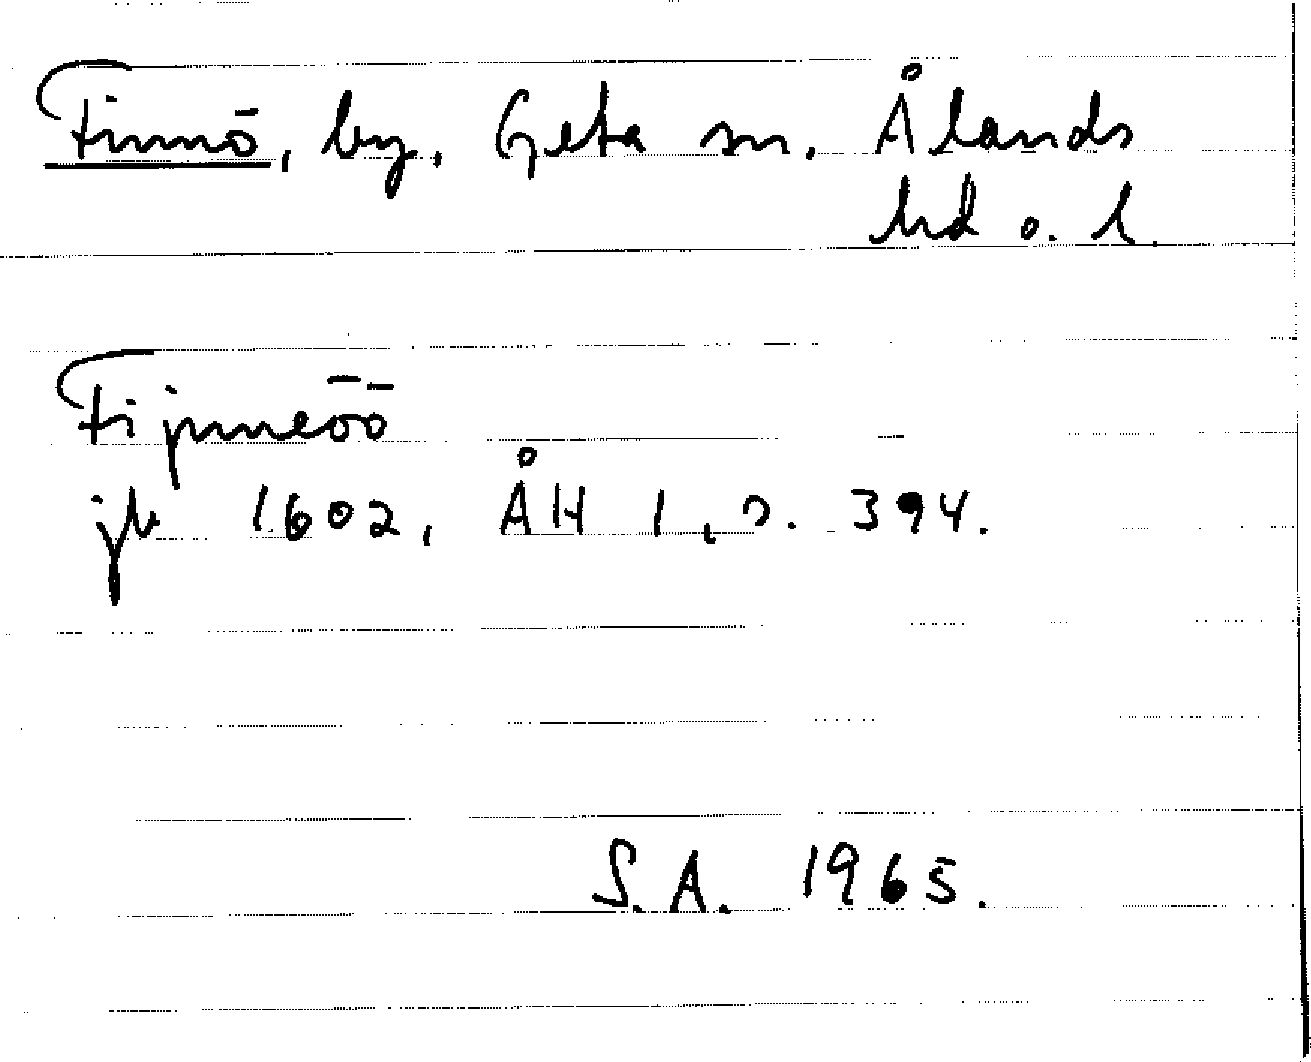 Finnö, by. Geta sn. Ålands
hd o. l.
Fijnneöö
jb 1602, ÅH 1, s. 394.
S.A. 1965.